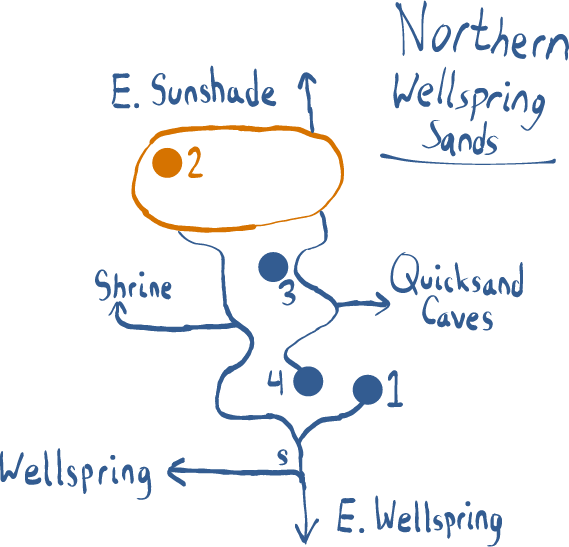 Northern
Wellspring
Sands
E. Sunshade
2
Shrine
3
Quicksand
Caves
4
1
s
Wellspring
E. Wellspring